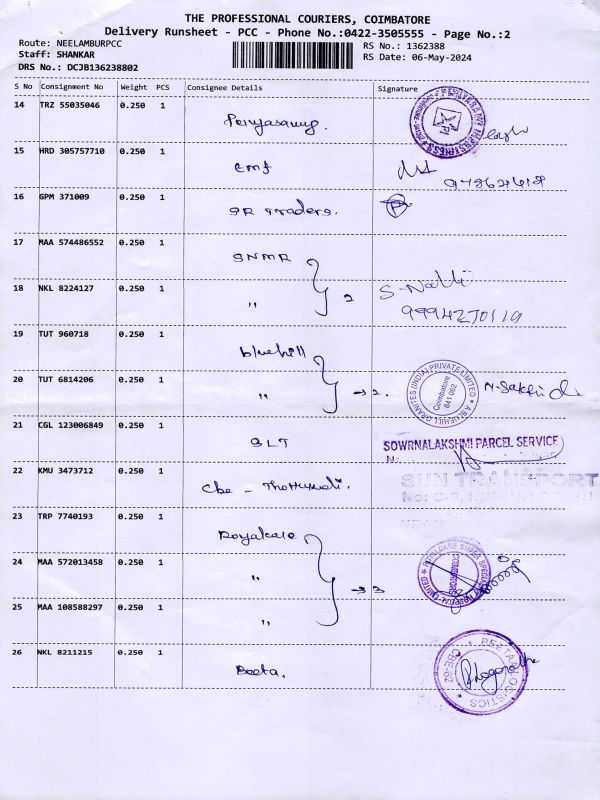 THE PROFESSIONAL COURIERS, COIMBATORE
Delivery Runsheet - PCC - Phone No.:0422-3505555 - Page No.:2
Route: NEELAMBURPCC
Staff: SHANKAR
DRS No.: DCJB136238802
RS No.: 1362388
RS Date: 06-May-2024
S No Consignment No Weight PCS Consignee Details Signature
14 TRZ 55035046 0.250 1 Periyasamy.
15 HRD 305757710 0.250 1 cmf
16 GPM 371009 0.250 1 SR Traders.
17 MAA 574486552 0.250 1 SNMR
18 NKL 8224127 0.250 1 " 2 S-Nalli
9994270119
19 TUT 960718 0.250 1 bluehill
20 TUT 6814206 0.250 1 " → 2. A BLUEHILL GRANITES (INDIA) PRIVATE LIMITED Coimbatore 641 062
21 CGL 123006849 0.250 1 SLT SOWRNALAKSHMI PARCEL SERVICE
22 KMU 3473712 0.250 1 Cbe - SUN TRANSPORT
23 TRP 7740193 0.250 1 Royalcare
24 MAA 572013458 0.250 1 " → 3
25 MAA 108588297 0.250 1 "
26 NKL 8211215 0.250 1 Reeta. REETA LOGISTICS CBE-62